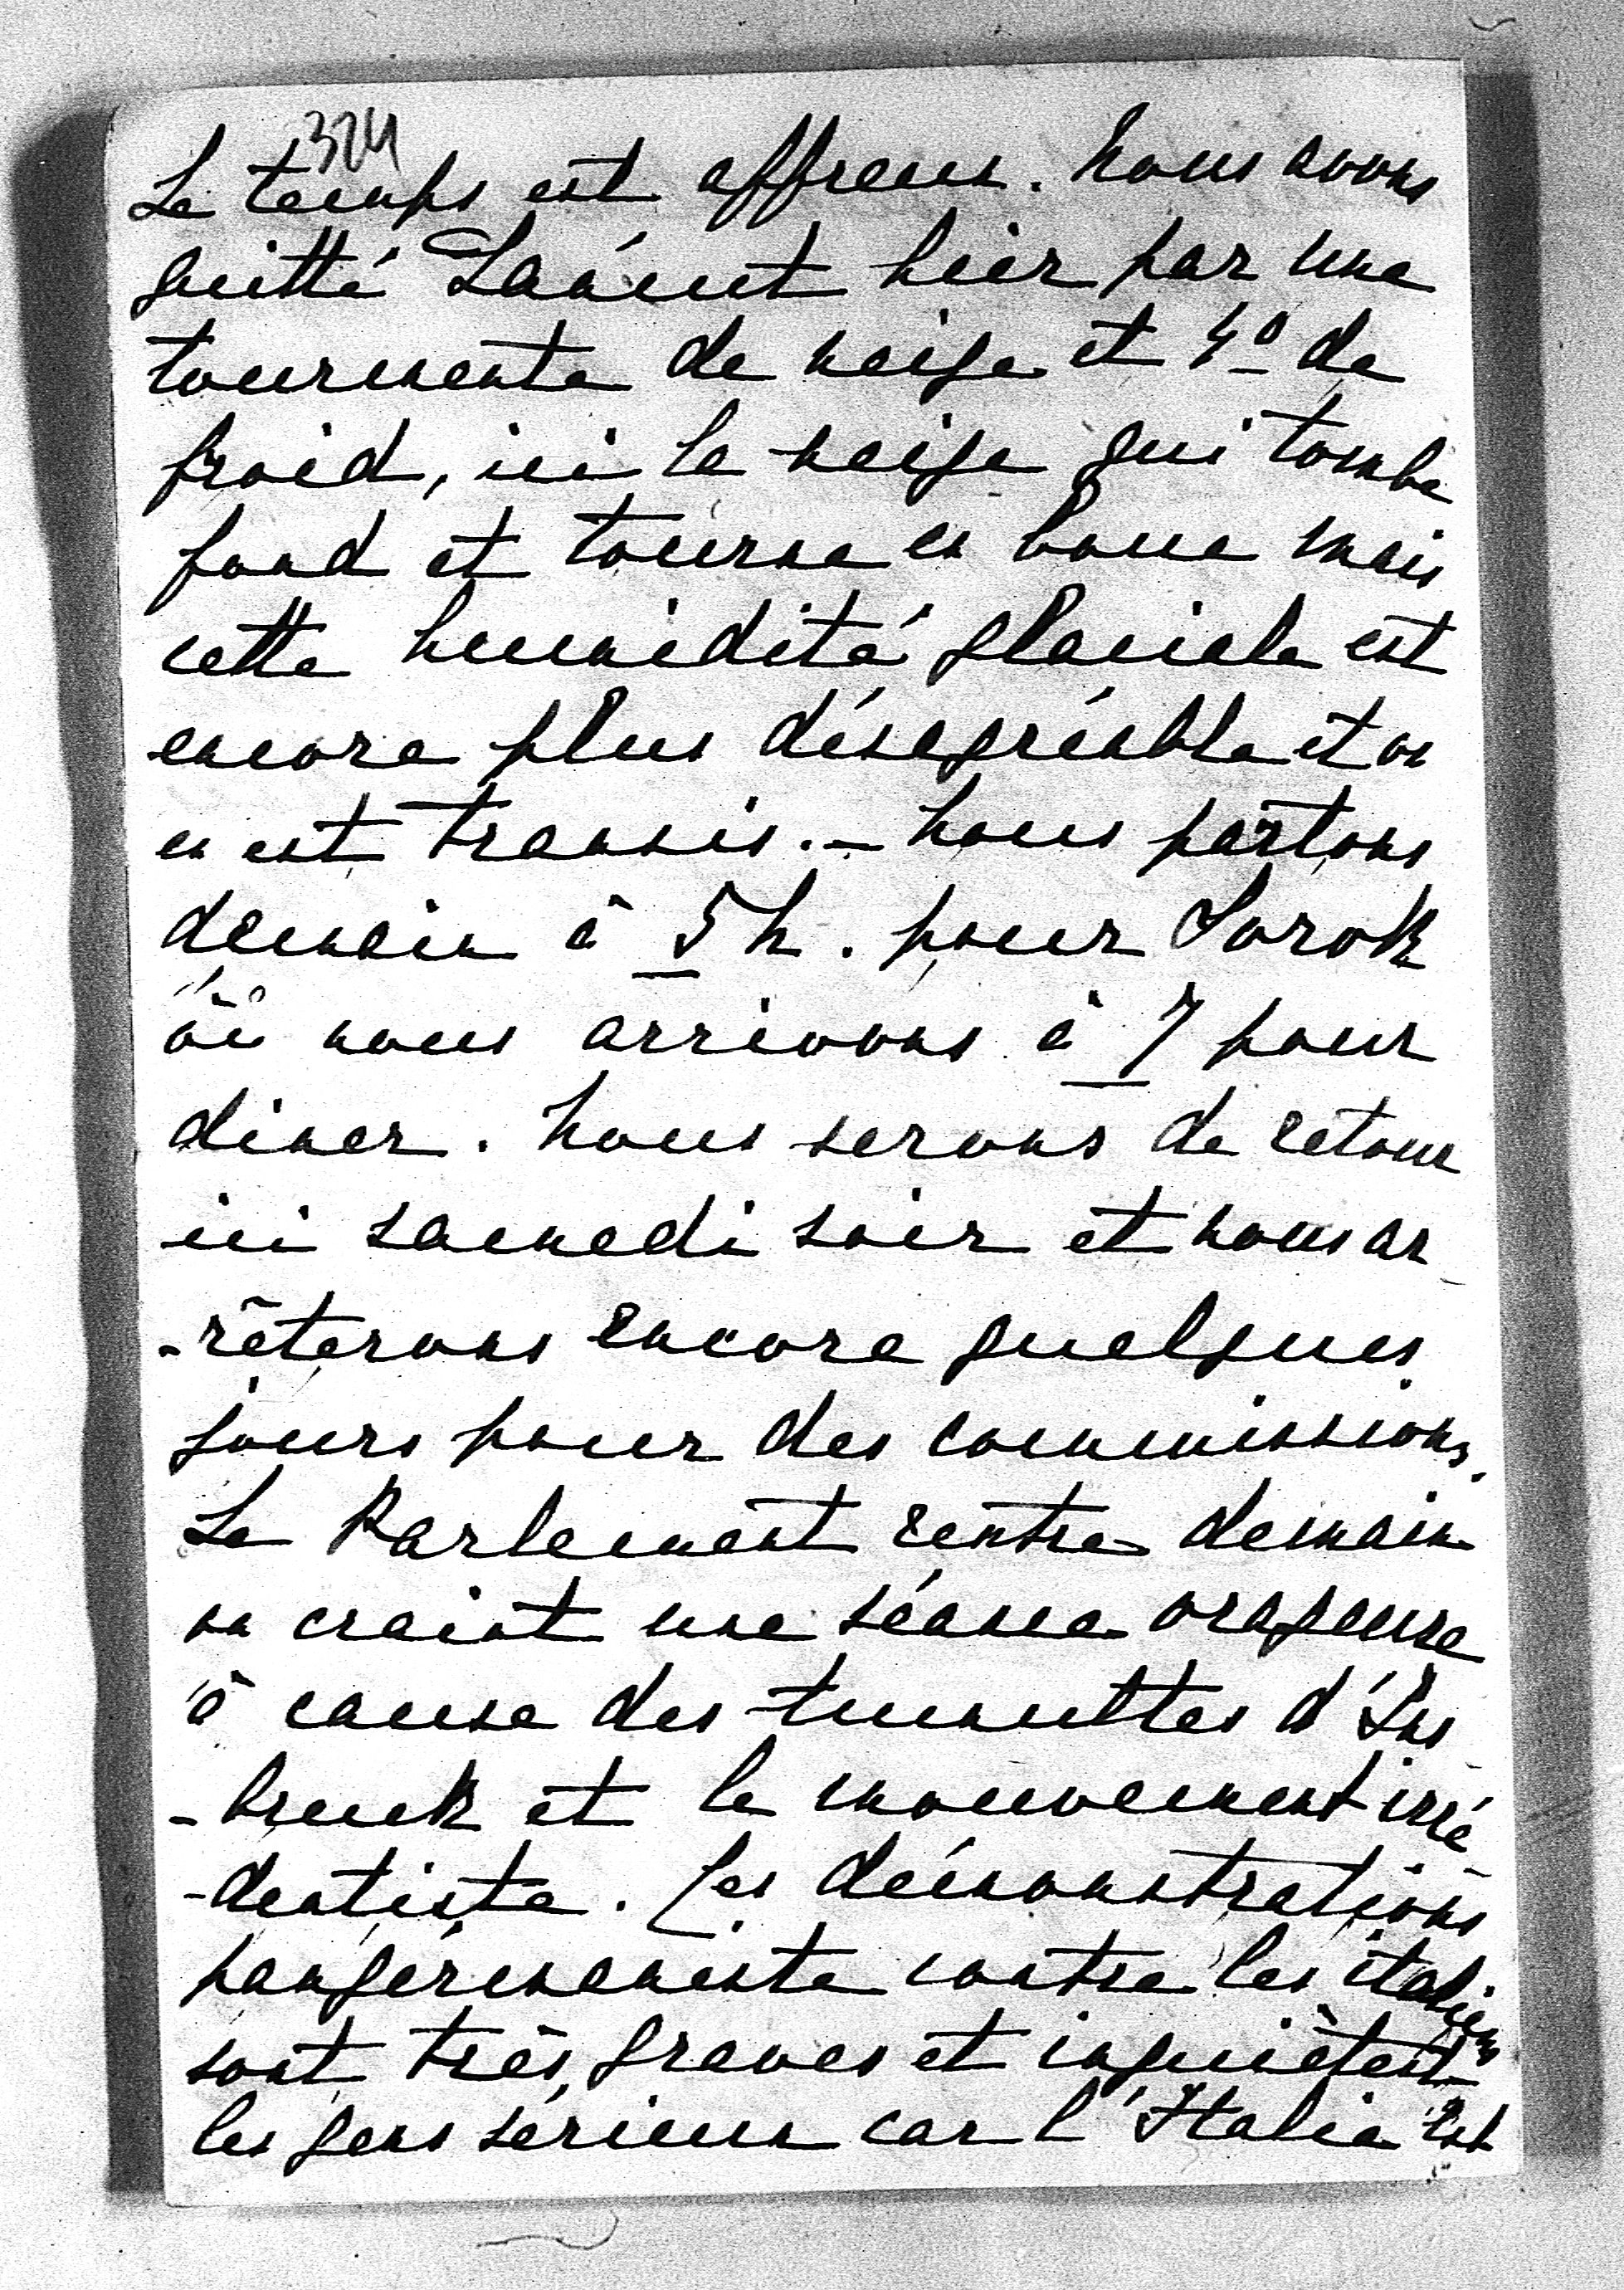 324
Le temps est affreux. Nous avons
quitté Łańcut hier par une
tourmente de neige et 4° de
froid, ici la neige qui tombe
fond et tourne en boue mais
cette humidité glaciale est
encore plus désagréable et on
en est transis. – Nous partons
demain à 5 h. pour
où nous arrivons à 7 pour
diner. Nous serons de retour
ici samedi soir et nous ar
-rêterons encore quelques
jours pour des commissions.
Le Parlement rentre demain
on craint une séance orageuse
à cause des tumultes d'Ins
-bruck et le mouvement irré
-dentiste. Les démonstrations
pangérmaniste contre les italiens
sont très graves et inquiètent
les gens sérieux car l'Italie est